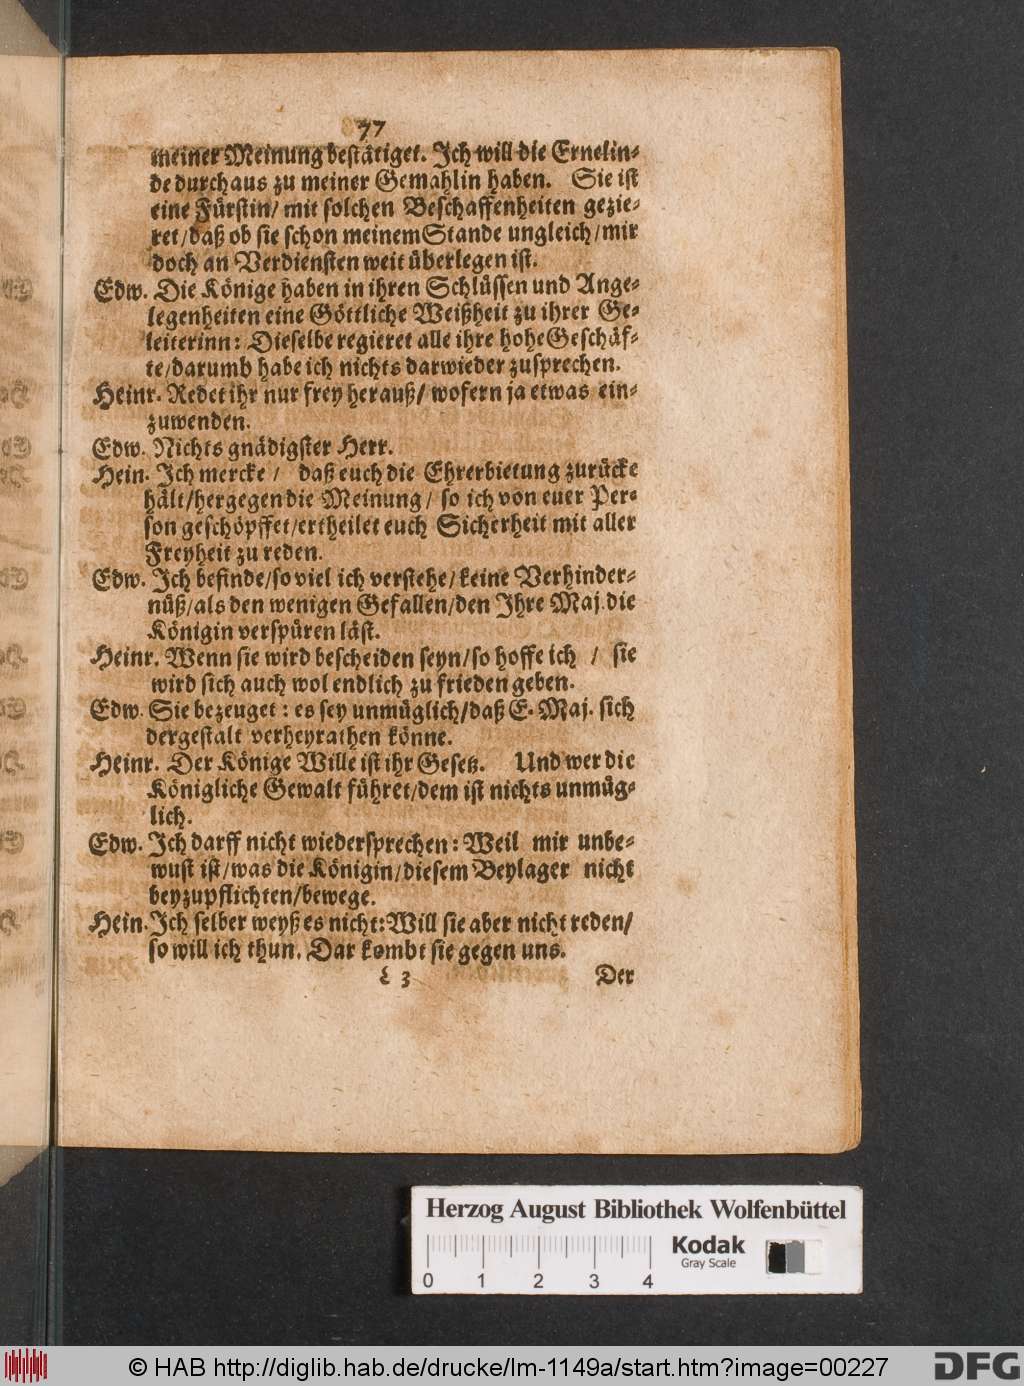 77
meiner Meinung bestätiget. Ich will die Ernelin-
de durchaus zu meiner Gemahlin haben. Sie ist
eine Fürstin/ mit solchen Beschaffenheiten gezie-
ret/daß ob sie schon meinem Stande ungleich/mir
doch an Verdiensten weit überlegen ist.
Edw. Die Könige haben in ihren Schlüssen und Ange-
legenheiten eine Göttliche Weißheit zu ihrer Ge-
leiterinn: Dieselbe regieret alle ihre hohe Geschäf-
te/darumb habe ich nichts darwieder zusprechen.
Heinr. Redet ihr nur frey herauß/ wofern ja etwas ein-
zuwenden.
Edw. Nichts gnädigster Herr.
Hein. Ich mercke / daß euch die Ehrerbietung zurücke
hält/hergegen die Meinung/ so ich von euer Per-
son geschöpffet/ertheilet euch Sicherheit mit aller
Freyheit zu reden.
Edw. Ich befinde/so viel ich verstehe/keine Verhinder-
nüß/als den wenigen Gefallen/den Ihre Maj. die
Königin verspüren läst.
Heinr. Wenn sie wird bescheiden seyn/so hoffe ich / sie
wird sich auch wol endlich zu frieden geben.
Edw. Sie bezeuget: es sey unmüglich/daß E. Maj. sich
dergestalt verheyrathen könne.
Heinr. Der Könige Wille ist ihr Gesetz. Und wer die
Königliche Gewalt führet/dem ist nichts unmüg-
lich.
Edw. Ich darff nicht wiedersprechen: Weil mir unbe-
wust ist/was die Königin/diesem Beylager nicht
beyzupflichten/bewege.
Hein. Ich selber weyß es nicht: Will sie aber nicht reden/
so will ich thun. Dar kombt sie gegen uns.
L 3 Der
Herzog August Bibliothek Wolfenbüttel
Kodak
Gray Scale
0 1 2 3 4
© HAB http://diglib.hab.de/drucke/lm-1149a/start.htm?image=00227
DFG